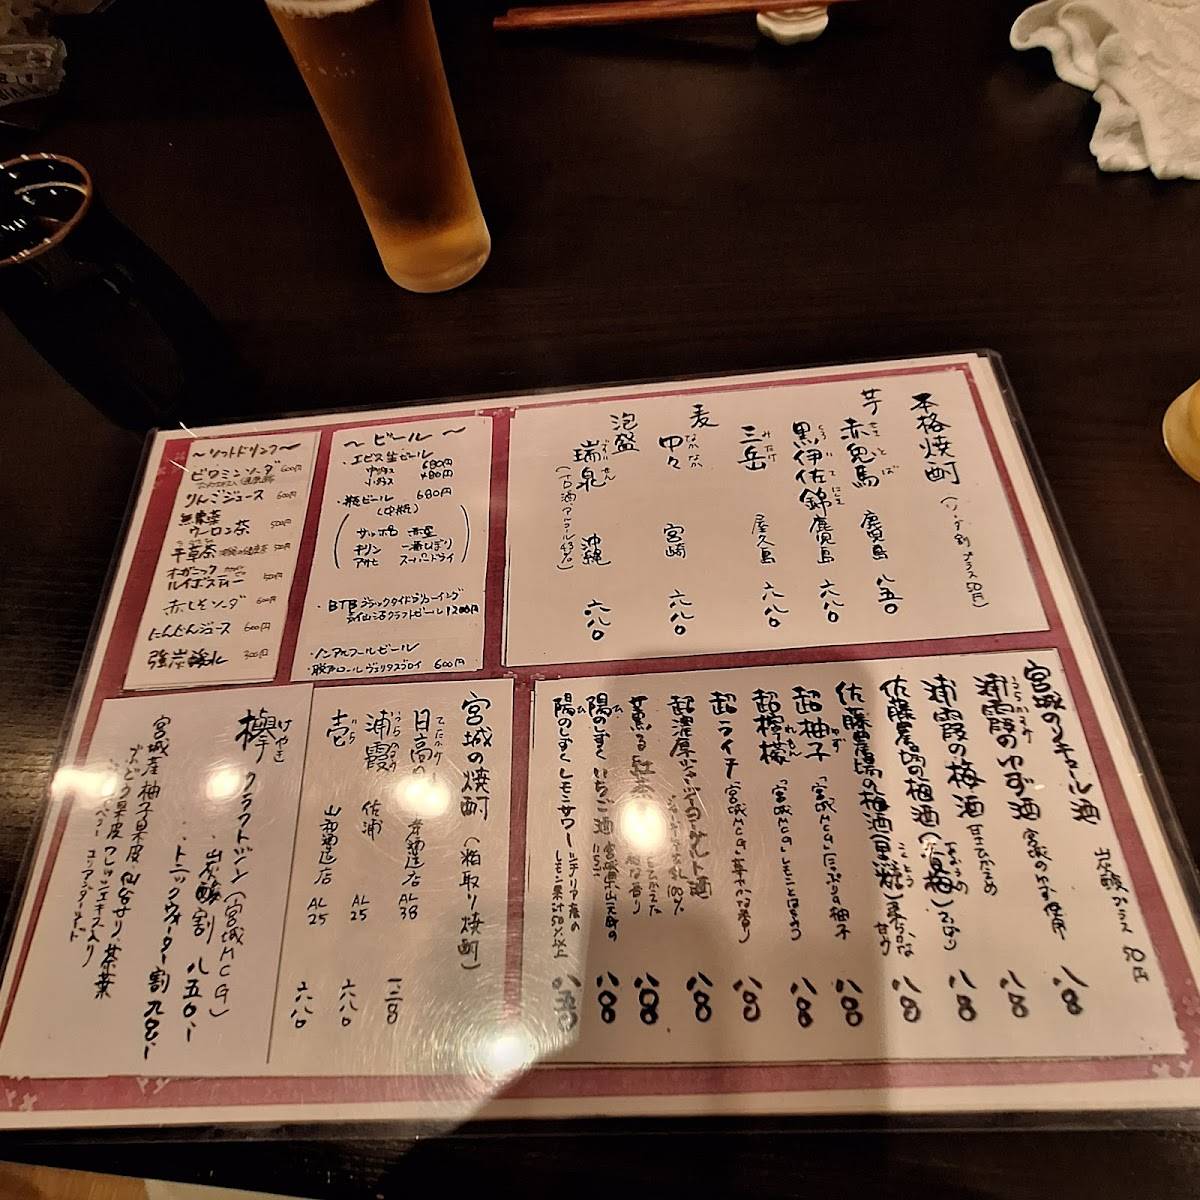 本格焼酎（ソーダ割プラス50円）
芋 赤兎馬 鹿児島 八五〇
黒伊佐錦 鹿児島 六八〇
三岳 みたけ 屋久島 六八〇
麦 中々 なかなか 宮崎 六八〇
泡盛 瑞泉 沖縄 六八〇
〜ビール〜
・エビス生ビール
中グラス 680円
小グラス 480円
・瓶ビール 680円
（中瓶）
サッポロ 赤星
キリン 一番しぼり
アサヒ スーパードライ
・BTBブラックタイドブリューイング
気仙沼クラフトビール1200円
・ノンアルコールビール
・龍馬 600円
〜ソフトドリンク〜
ビタミンソーダ 600円
りんごジュース 600円
無農薬
ウーロン茶 500円
オーガニック
ルイボスティー
赤しそソーダ 600円
にんじんジュース 600円
強炭酸水 300円
宮城のリキュール酒 炭酸プラス50円
浦霞のゆず酒 宮城のゆず使用 八八〇
浦霞の梅酒 甘さひかえめ 八八〇
佐藤農場の梅酒 八八〇
佐藤農場の梅酒 八八〇
超柚子 ゆず 「宮城MCG」たっぷりの柚子 八八〇
超檸檬 れもん 「宮城MCG」レモンとはちみつ 八八〇
超ライチ 「宮城MCG」華やかな香り 八八〇
超濃厚ジャージーヨーグルト酒 八八〇
薫る紅茶酒 八八〇
陽のしずくいちご酒 宮城県山元町のいちご 八八〇
陽のしずくレモンサワー シチリア産のレモン果汁50%以上
宮城の焼酎（粕取り焼酎）
AL38
浦霞 うらかすみ 佐浦 AL25 六八〇
壱 いち 山和酒造店 AL25 六八〇
欅 けやき クラフトジン（宮城MCG）
・炭酸割 八五〇
・トニックウォーター割 九八〇
宮城産柚子果皮、セリ、茶葉
ぶどう果皮